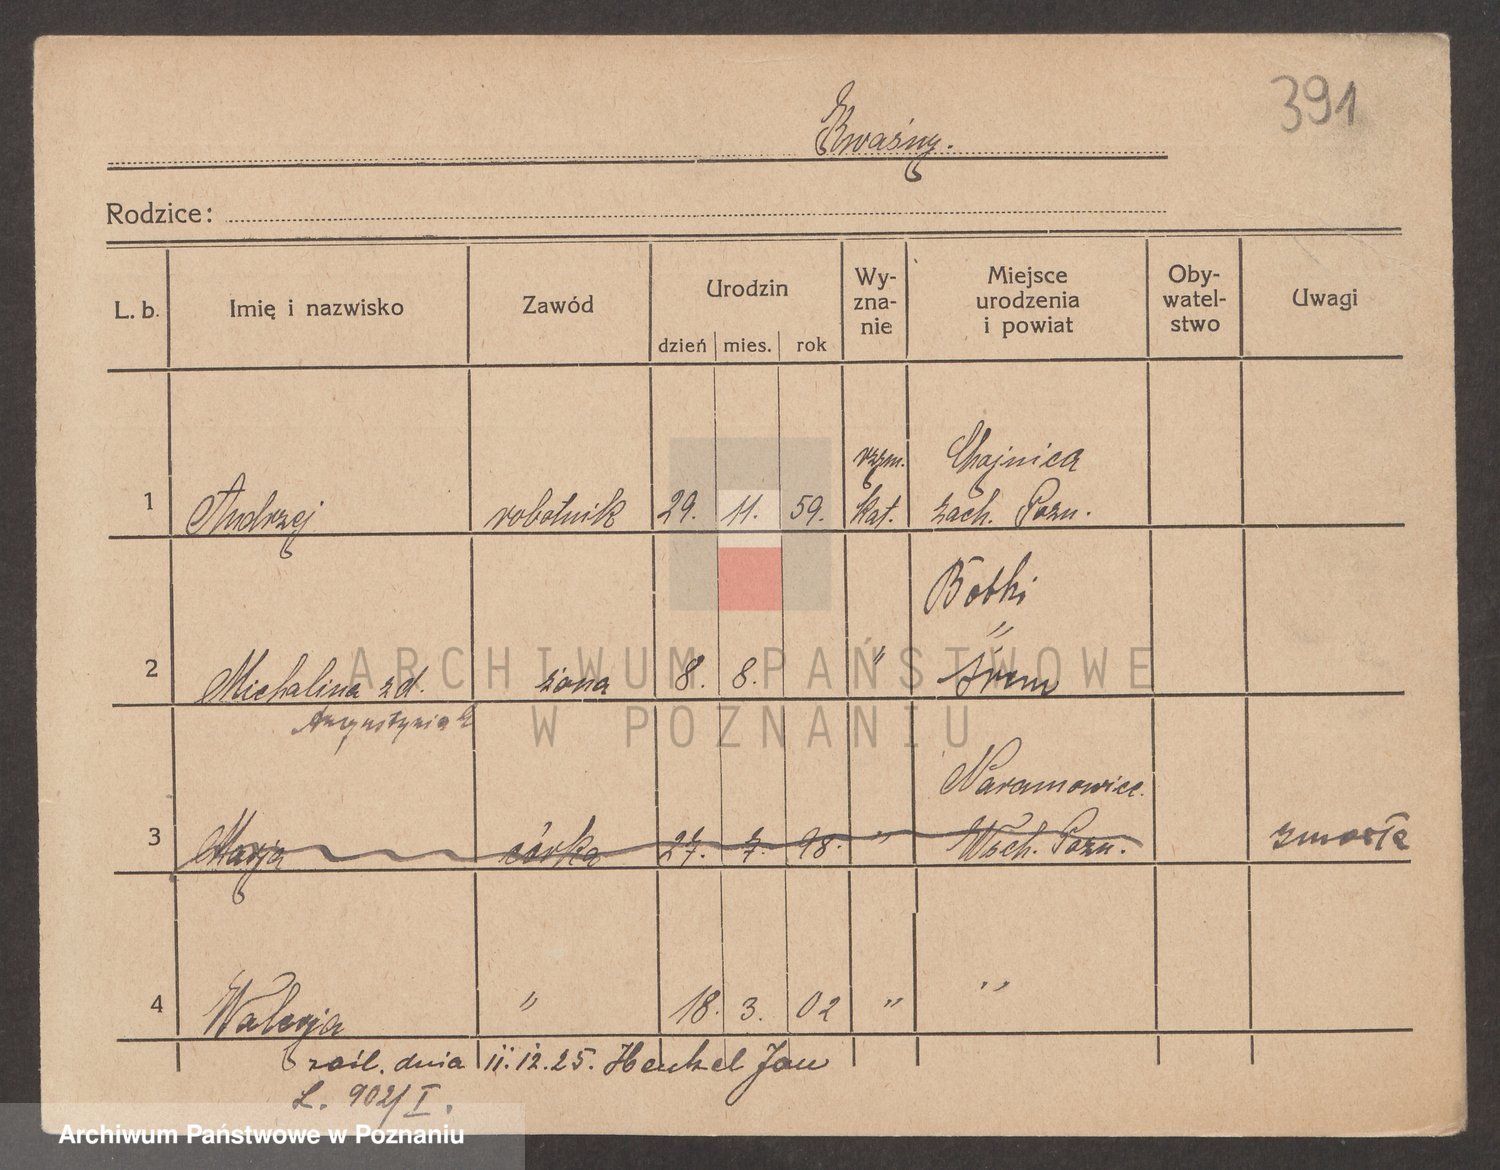 391
Kwaśny.
Rodzice:
L. b. Imię i nazwisko Zawód Urodzin dzień mies. rok Wy-zna-nie Miejsce urodzenia i powiat Oby-watel-stwo Uwagi
rzym. Chojnica
1 Andrzej robotnik 29. 11. 59. kat. zach. Pozn.
Botki
"
2 Michalina zd. żona 8. 8. " Śrem
Augustyniak
Naramowice
3 Marja córka 27. 7. 98. " Wsch. Pozn. zmarła
4 Walerja " 18. 3. 02 " "
zaśl. dnia 11.12.25. Henkel Jan
L. 902/I.
ARCHIWUM PAŃSTWOWE
W POZNANIU
Archiwum Państwowe w Poznaniu